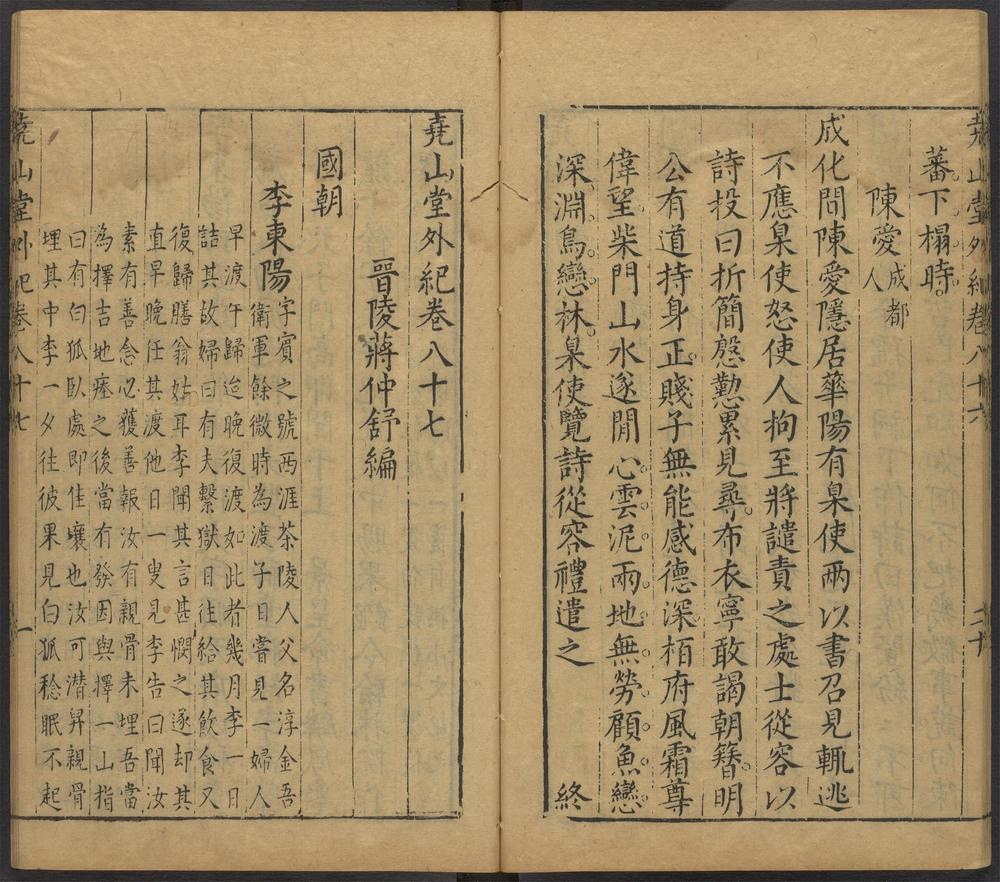 堯山堂外紀卷八十六 二十
蕃下榻時
陳愛成都
人
成化間陳愛隱居華陽有臬使两以書召見輒逃
不應臬使怒使人拘至將譴責之處士從容以
詩投曰折簡慇懃累見尋布衣寧敢謁朝簪明
公有道持身正賤子無能感德深栢府風霜尊
偉望柴門山水遂閒心雲泥兩地無勞顧魚戀
深淵鳥戀林臬使覽詩從容禮遣之 終
堯山堂外紀卷八十七
晉陵蔣仲舒編
國朝
李東陽字賓之號西涯茶陵人父名淳金吾
衛軍餘微時為渡子日嘗見一婦人
早渡午歸迨晚復渡如此者幾月李一日
詰其故婦曰有夫繫獄日往給其飲食又
復歸膳翁姑耳李聞其言甚憫之遂却其
直早晚任其渡他日一叟見李告曰聞汝
素有善念必獲善報汝有親骨未埋吾當
為擇吉地瘞之後當有發因與擇一山指
曰有白狐臥處即佳壤也汝可潜昇親骨
埋其中李一夕往彼果見白狐稔眠不起
堯山堂外紀卷八十七 一